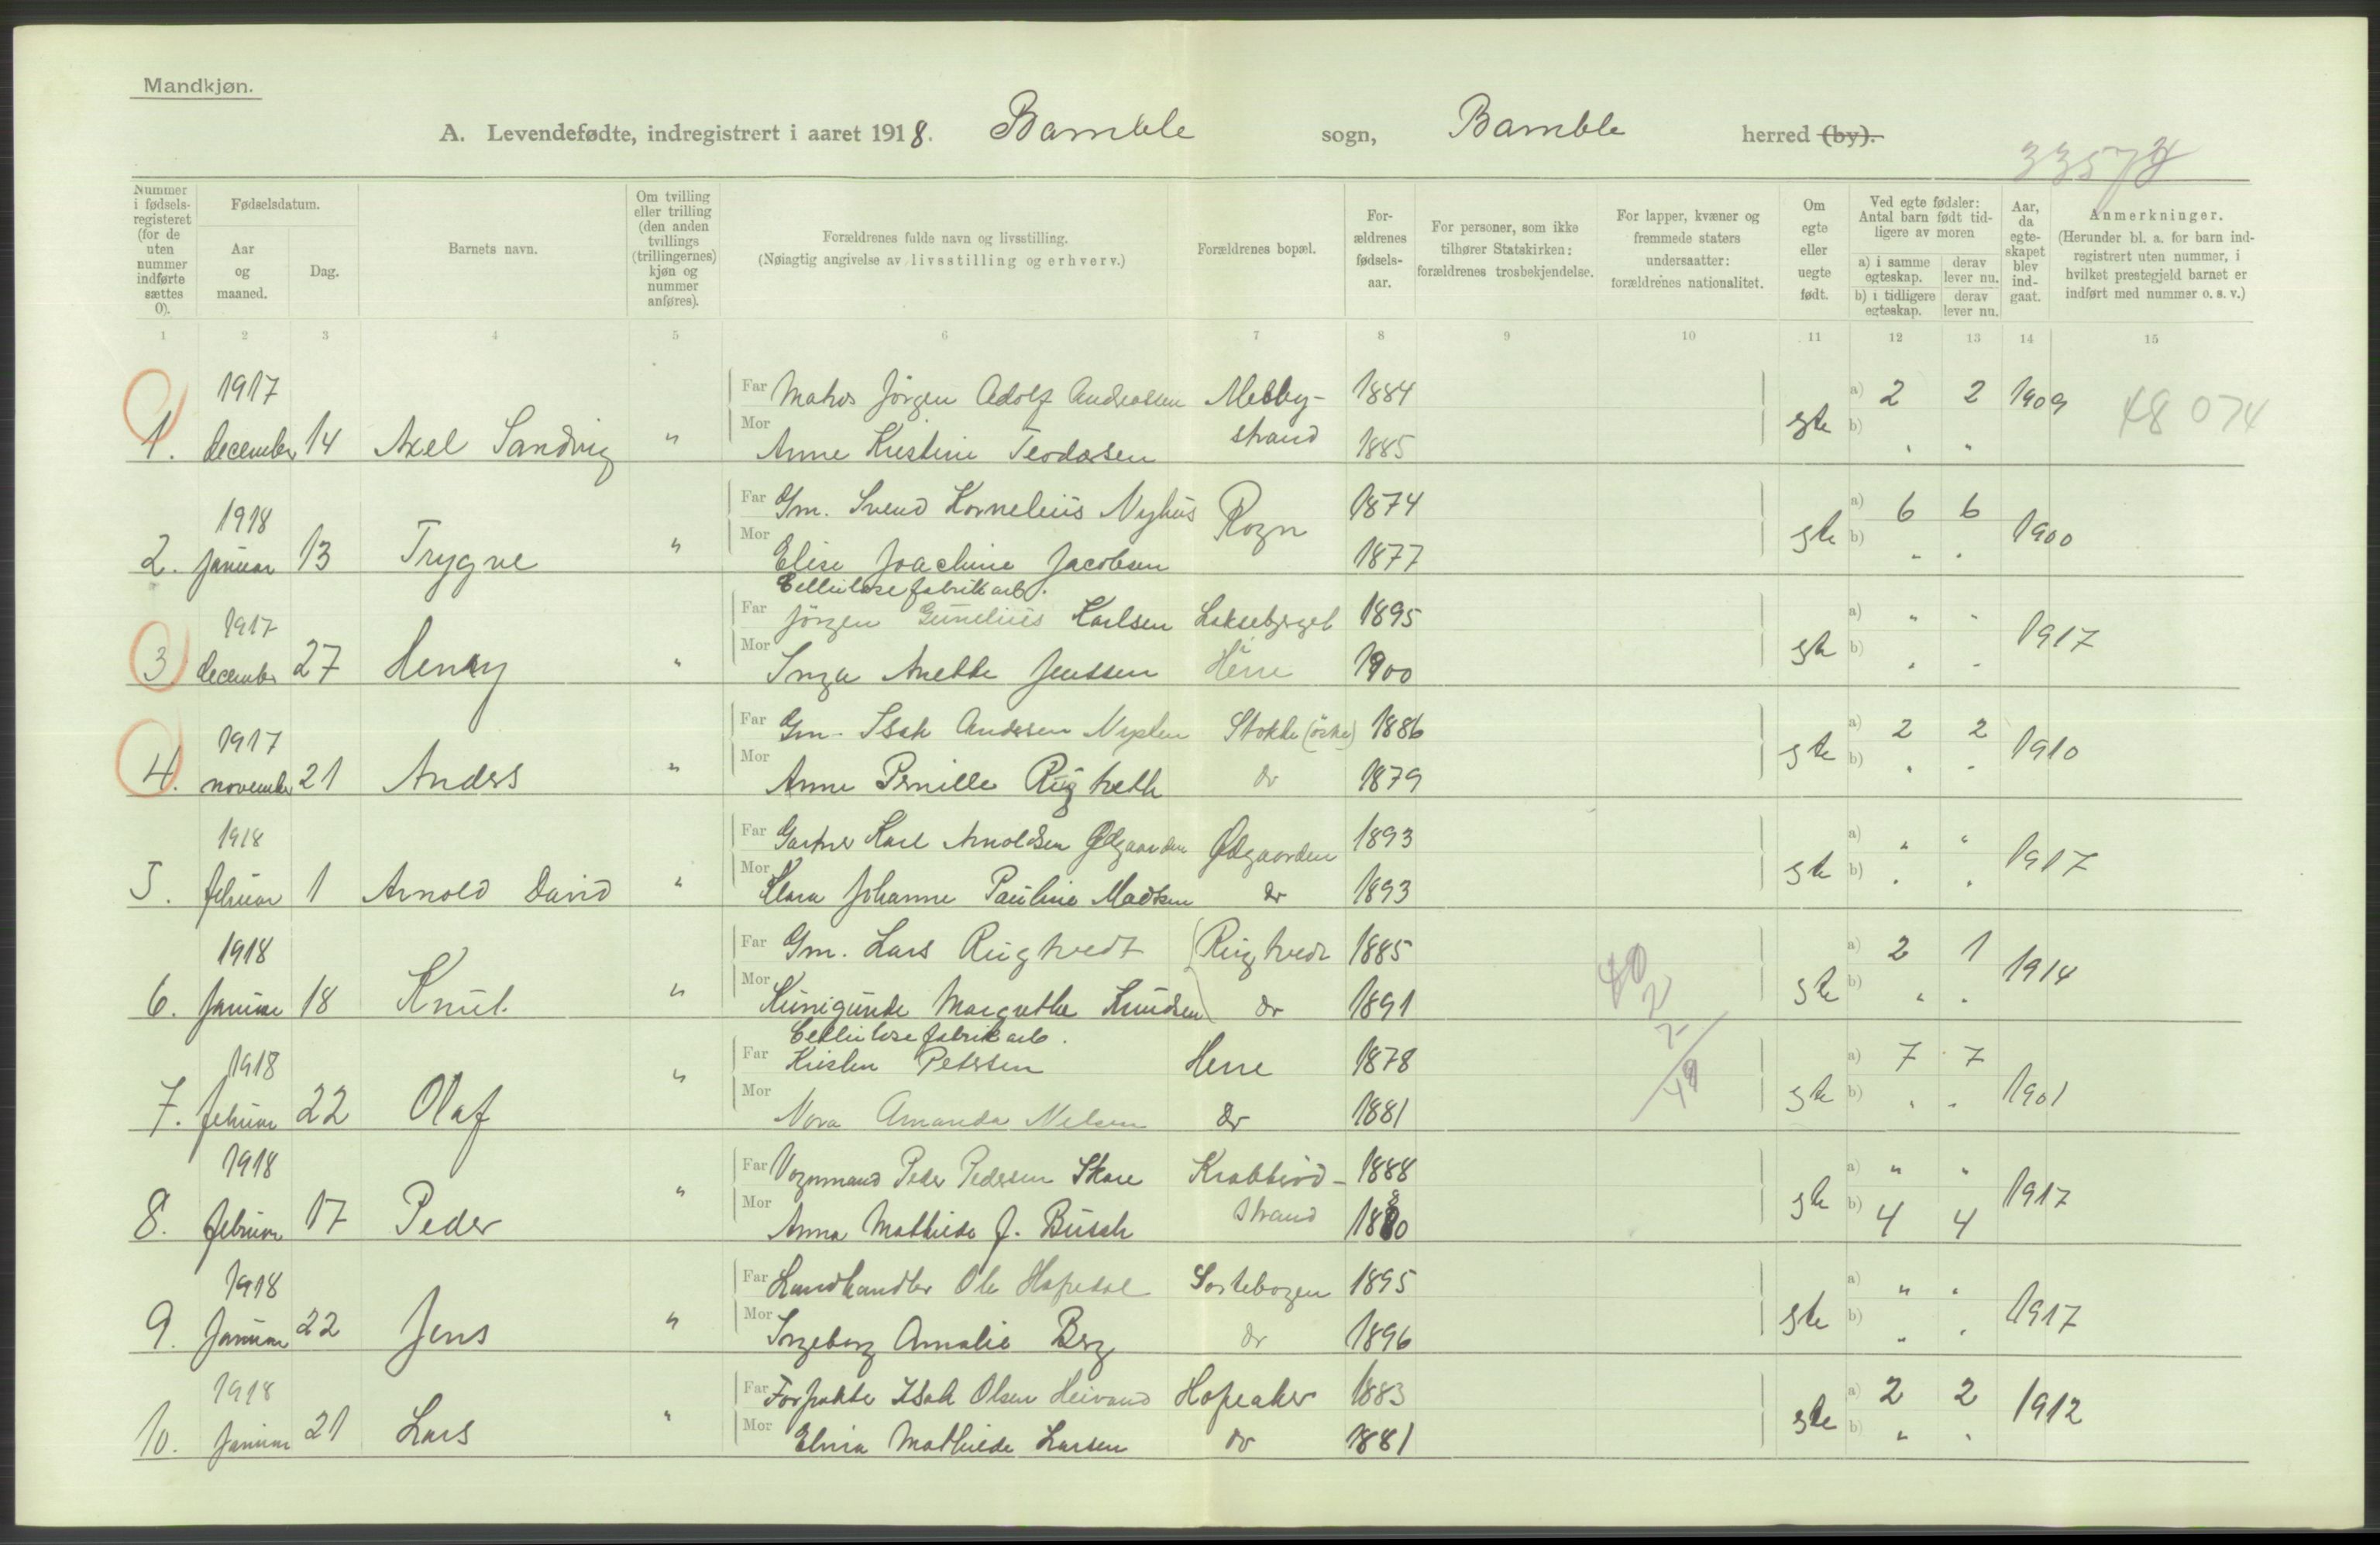 Mandkjøn.
A. Levendefødte, indregistrert i aaret 1918. Bamble sogn, Bamble herred (by).
33574
Nummer i fødsels-registeret (for de uten nummer indførte sættes 0).
Fødselsdatum.
Aar og maaned.
Dag.
Barnets navn.
Om tvilling eller trilling (den anden tvillings (trillingernes) kjøn og nummer anføres).
Forældrenes fulde navn og livsstilling.
(Nøiagtig angivelse av livsstilling og erhverv.)
Forældrenes bopæl.
For-ældrenes fødsels-aar.
For personer, som ikke tilhører Statskirken: forældrenes trosbekjendelse.
For lapper, kvæner og fremmede staters undersaatter: forældrenes nationalitet.
Om egte eller uegte født.
Ved egte fødsler: Antal barn født tid-ligere av moren
a) i samme egteskap. derav lever nu.
b) i tidligere egteskap. derav lever nu.
Aar, da egte-skapet blev ind-gaat.
Anmerkninger.
(Herunder bl. a. for barn ind-registrert uten nummer, i hvilket prestegjeld barnet er indført med nummer o. s. v.)
1 2 3 4 5 6 7 8 9 10 11 12 13 14 15
1917 Far Matros Jørgen Adolf Andreassen 1884 a) 2 2 1909 48 074
1. december 14 Axel Sandvig " Mor Anne Kristine Teodorsen strand 1885 egte b) " "
1918 Far Gm. Svend Kornelius Nyhus Rogn 1874 a) 6 6
2. januar 13 Trygve " Mor Elise Joachine Jacobsen 1877 egte b) " " 1900
Cellulosefabrikarb.
1917 Far Jörgen Gunelius Karlsen Laksebjerget 1895 a) " "
3 december 27 Henry " Mor Inga Anette Jenssen Herre 1900 egte b) " " 1917
1917 Far Gm. Isak Andersen Stokke (östre) 1886 a) 2 2
4. november 21 Anders " Mor Anne Pernille Rugtvett do 1879 egte b) " " 1910
1918 Far Gartner Karl Arnoldsen Ødegaarden Ødegaarden 1893 a) " "
5. februar 1 Arnold David " Mor Klara Johanne Pauline Madsen do 1893 egte b) " " 1917
1918 Far Gm. Lars Rugtvedt Rugtvedt 1885 a) 2 1
6. januar 18 Knut " Mor Kunigunde Margrethe Knudsen do 1891 egte b) " " 1914
40
2
2
Cellulosefabrikarb.
1918 Far Kristen Petersen Herre 1878 a) 7 7
7. februar 22 Olaf " Mor Nora Amanda Nelsen do 1881 egte b) " " 1901
1918 Far Vognmand Peder Pedersen Skare Krabberød- 1888 a) " "
8. februar 17 Peder " Mor Anna Mathilde J. Busch strand 1880 egte b) 4 4 1917
1918 Far Landhandler Ole Hafredal Sortebogen 1895 a) " "
9. januar 22 Jens " Mor Ingeborg Amalie Berg do 1896 egte b) " " 1917
1918 Far Forpakter Isak Olsen Heivand Hafsaker 1883 a) 2 2
10. januar 21 Lars " Mor Elvira Mathilde Larsen do 1881 egte b) " " 1912